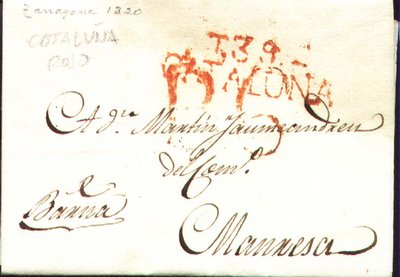 Tarragona 1820
CATALUÑA
T39
ALONA
A dn. Martin Jaumeandreu
del Comº.
Barna
Manresa